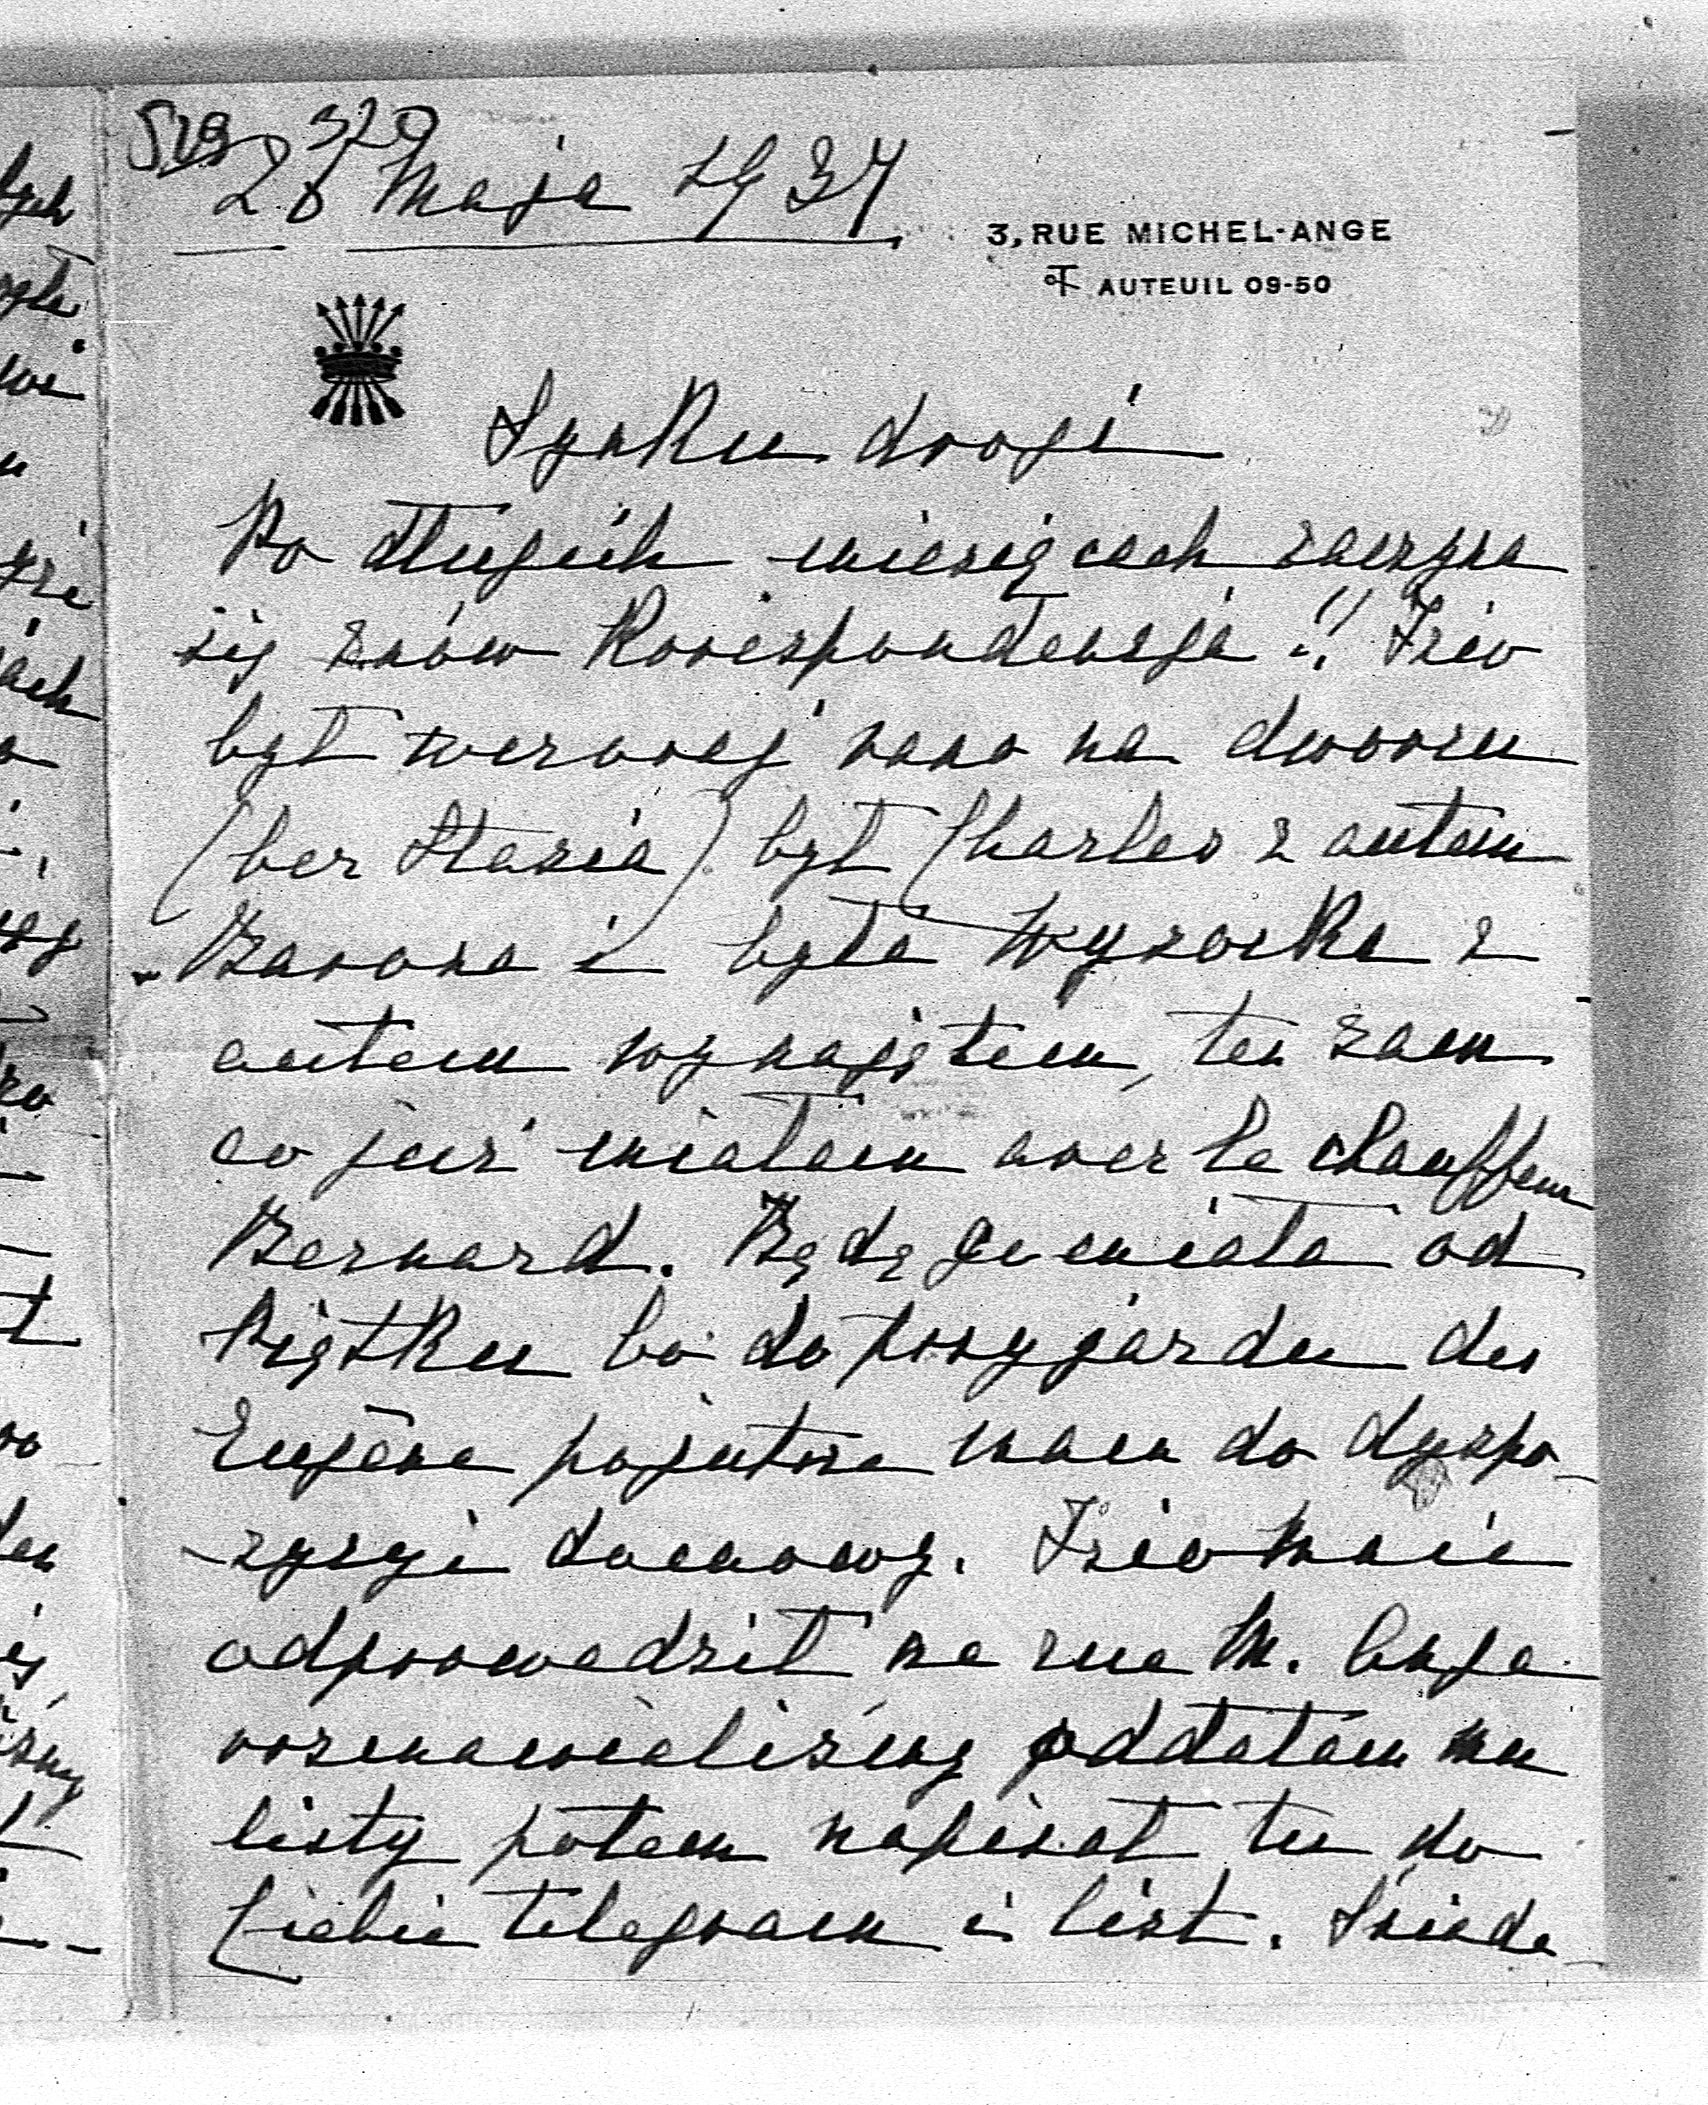 519 320
26 Maja 1937
3, RUE MICHEL-ANGE
AUTEUIL 09-50
Synku drogi
Po długich miesiącach zaczyna
się znów Korespondensja!! Izio
był wczoraj rano na dworcu
(bez Stasia) był Charles z autem
Barona i była Wysocka z
autem wynajętem, ten sam
co już miałam avec le chauffeur
Bernard. Będę go miała od
Piątku bo do przyjazdu du
Eugène pojutrze mam do dyspo-
zycyi domowy. Izio mnie
odprowadził na rue M. Ange
rozmawialiśmy oddałam mu
listy potem napisał tu do
Ciebie telegram i list. Śniada